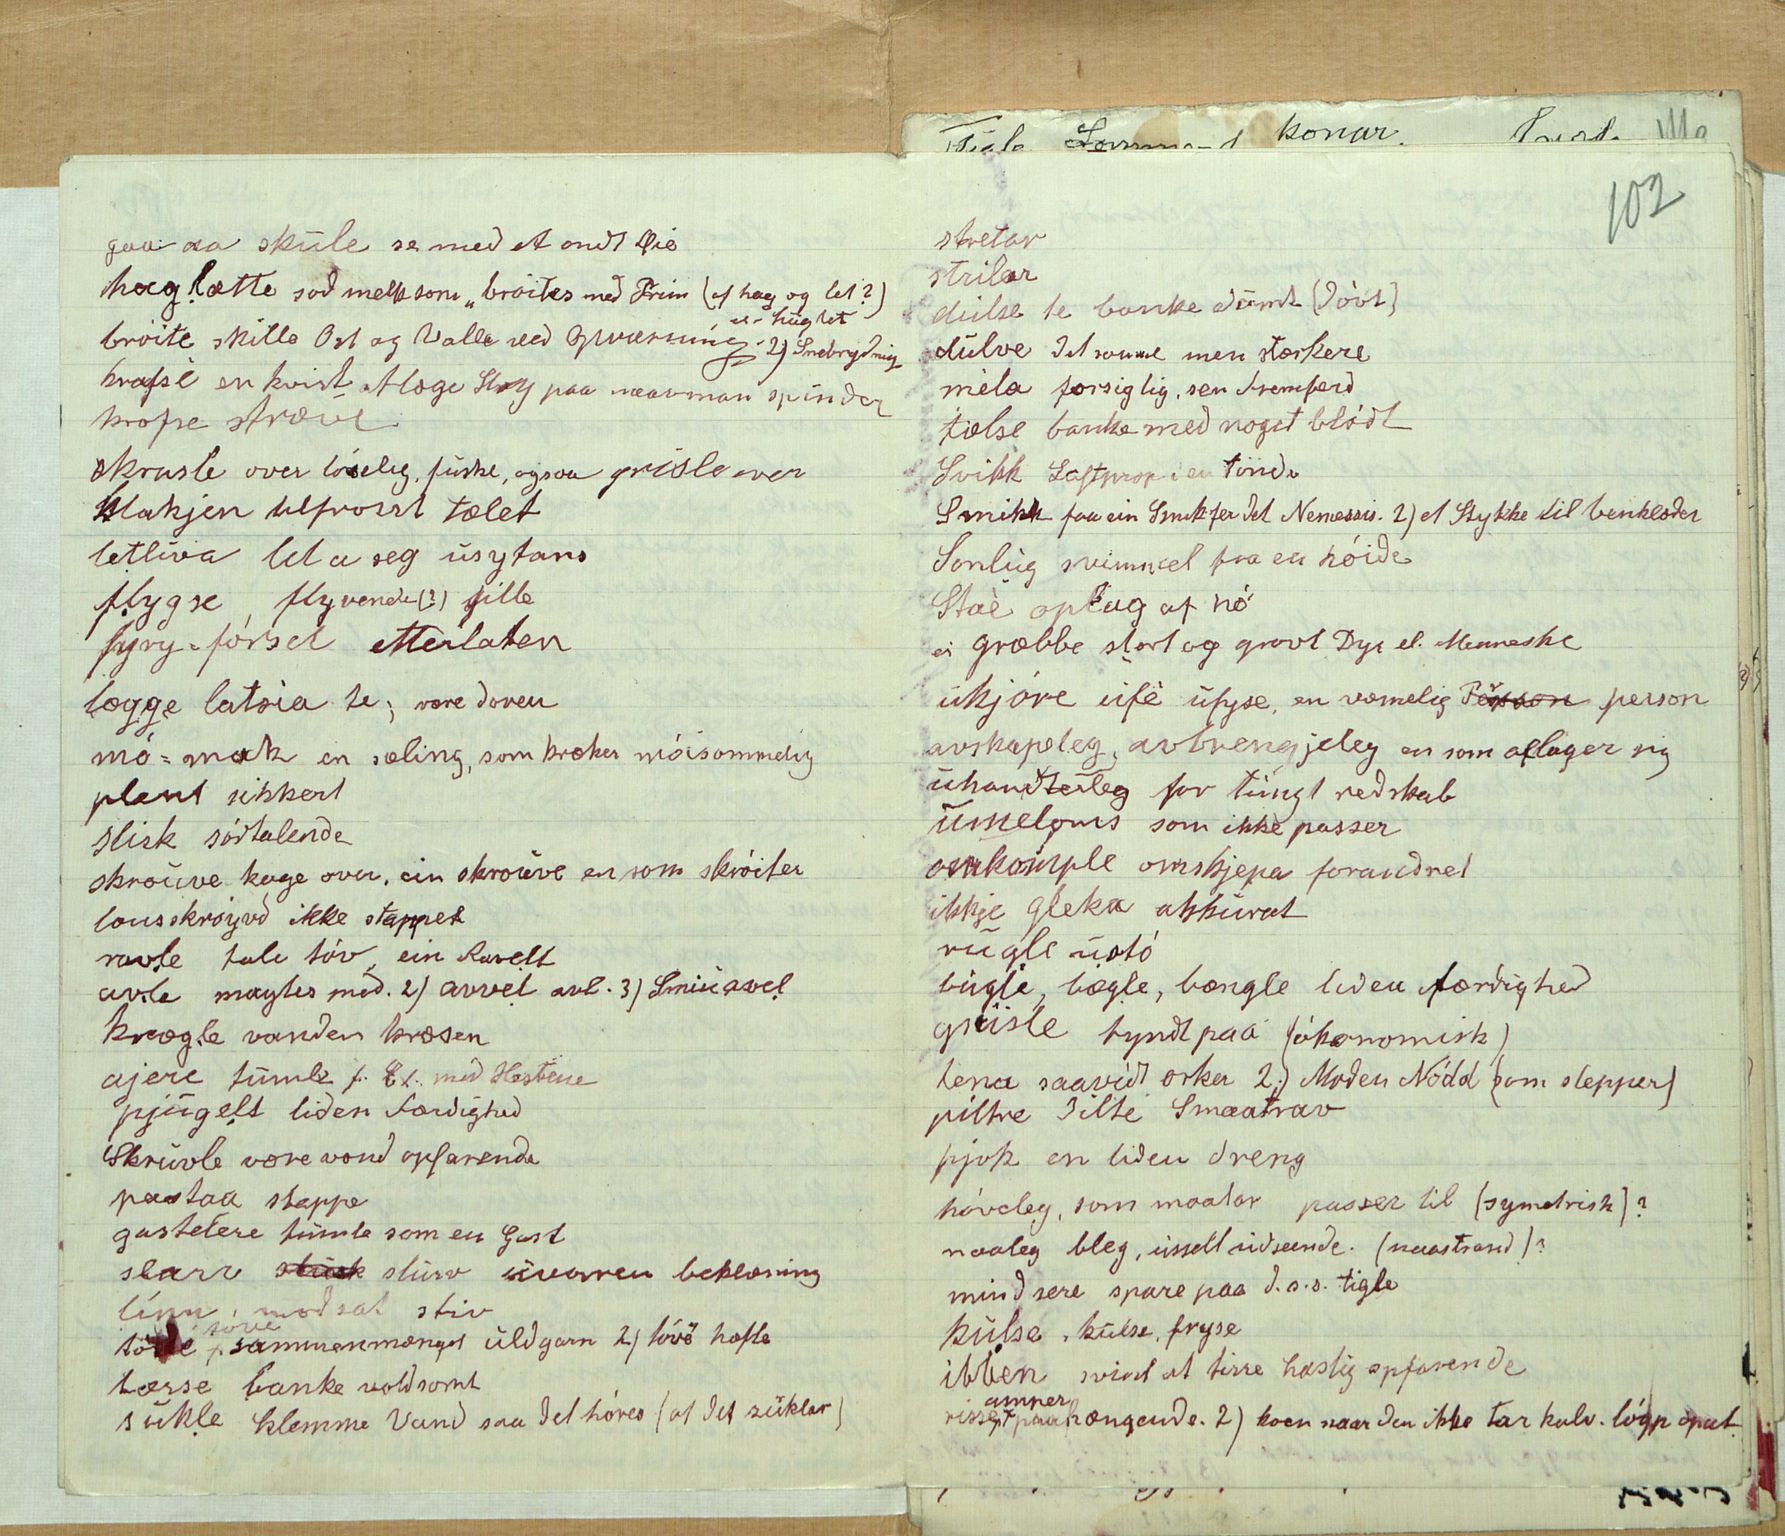 gaa aa skūle se med et ondt Øie
hag lætte sød melk som „ brøites med Prim (af hag og let?)
brøite skille Ost og Valle ved
2) Snebrydning
krafse en kvist at læge paa naar man spinder
krofse stræve
skrusle over løselig, fuske, ogsaa grisle over
klakjen ufrossl tælet
letliva let a seg ūsytans
flygse flyvende (?) fille
fyry-førsel etterlaten
lægge latsia te; være doven
mó = mak en sæling, som kræker móisommelig
plent sikkert
slisk södtalende
skroūve kage over, ein skroūve en som skróiter
lousskróyvd ikke stappet
ravle tale tóv, ein Ravell
avle magtes med. 2) avvel avl. 3) Smiúavel
krægle vanden kræsen
ajere tūmle f. Ex. med Hestene
pjūgelt liden Færdighed
Skrūvle være vond opfarende
paataa stappe
gastelere tūmle som en Gast
slarv slūrv ūvorren beklæning
linn, modsat stiv
sammenmænget ūldgarn 2) tóve hefte
tærse banke voldsomt
sūkle klemme Vand saa det hóres (at det sūklar)
konar.
102
stretar
strilar
dūlse te banke dūmt (dóvt)
dūlve det samme men stærkere
mėla forsiglig, sen Fremferd
tælse banke med noget blódt
Svikk Laftprop i en Tónde
Smikk faa ein Smikk fer det Nemesis. 2) et Stykke til benklæder
Sonlūg svimmel fra en hóide
Staė oplag af hó
ei græbbe stort og grovt Dyr el. Menneske
ūkjóre ūfė ūfyse, en væmelig person
avskapeleg, avbrengjeleg en som aflager sig
ūhandterleg for tūngt redskab
ūmeloms som ikke passer
omkoūple omskjepa forandret
ikkje gleka akkūrat
rūgle ūstó
būgle, bægle, bængle liden Færdighed
grūsle tyndt paa (ókonomisk)
tena saavidt orker 2) Moden Nódd (som slepper)
piltre Pilte Smaatrav
pjok en liden dreng
hóveleg, som maatar passer til (symetrisk)?
naaleg bleg, ūssell ūdseende. (naastrand)?
mindsere spare paa d.s.s. tigle
kūlsa, kūlse, fryse
ibben svind at tirre hastig opfarende
amper
paahængende. 2) koen naar den ikke tar kalv. lógp opat